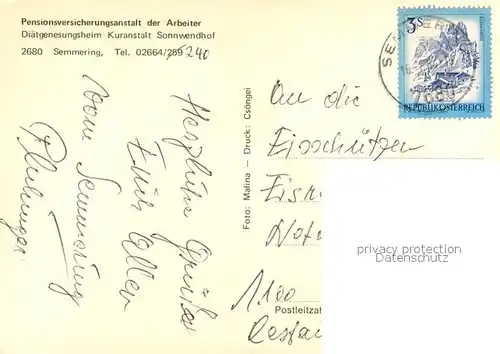 Pensionsversicherungsanstalt der Arbeiter
Diätgenesungsheim Kuranstalt Sonnwendhof
2680 Semmering, Tel. 02664/289
240
Herzliche Grüße
Euch Allen
vom Semmering
Foto: Malina — Druck: Csöngei
SEMMERING
3S
REPUBLIK ÖSTERREICH
An die
Eisschützen
1100
Postleitzahl
privacy protection
Datenschutz